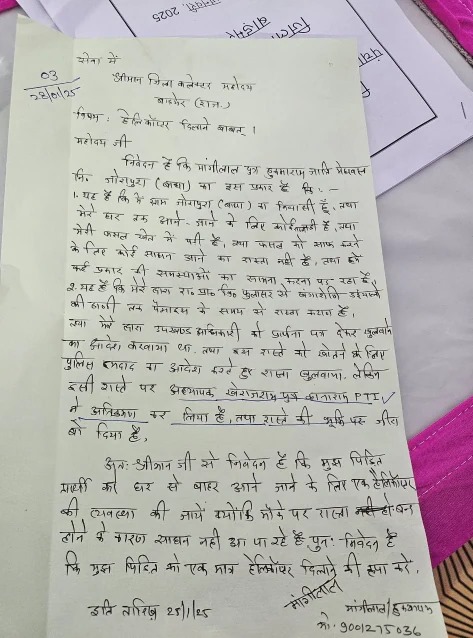 जनवरी, 2025
जिला
बाड़मेर
पंचा
03
28/01/25
सेवा में
श्रीमान जिला कलेक्टर महोदय
बाड़मेर (राज.)
विषय : हेलिकॉप्टर दिलाने बाबत।
महोदय जी
निवेदन है कि मांगीलाल पुत्र हुकमाराम जाति मेघवाल
नि. जोरापुरा (बाचा) का इस प्रकार है कि :-
1. यह है कि मैं ग्राम जोरापुरा (बाचा) का निवासी हूँ, तथा
मेरे घर तक आने-जाने के लिए कोई है, तथा
मेरी फसल खेत में पड़ी है, तथा फसल को साफ करने
के लिए कोई साधन आने का रास्ता नहीं है, तथा
कई प्रकार की समस्याओं का सामना करना पड़ रहा है
2. यह है कि मेरे द्वारा रा. प्रा. वि. फुलासर से
की ढाणी तक पैमाइश के समय से रास्ता कटाण है,
तथा मेरे द्वारा उपखण्ड अधिकारी को प्रार्थना पत्र देकर खुलवाने
का आदेश करवाया था. तथा इस रास्ते को खोलने के लिए
पुलिस इमदाद का आदेश करते हुए रास्ता खुलवाया. लेकिन
इसी रास्ते पर अध्यापक, खेराजराम पुत्र कानाराम PTI
ने अतिक्रमण कर लिया है, तथा रास्ते की भूमि पर जीरा
बो दिया है,
अतः श्रीमान जी से निवेदन है कि मुझ पिडित
प्रार्थी को घर से बाहर आने जाने के लिए एक हेलिकॉप्टर
की व्यवस्था की जायें क्योंकि मौके पर रास्ता बन्द
होने के कारण साधन नहीं आ पा रहे हैं पुनः निवेदन है
कि मुझ पिडित को एक मात्र हेलिकॉप्टर दिलाने की कृपा करे.
इति तारिख 25/1/25
मांगीलाल
मांगीलाल / हुकमाराम
मो. 9001275036